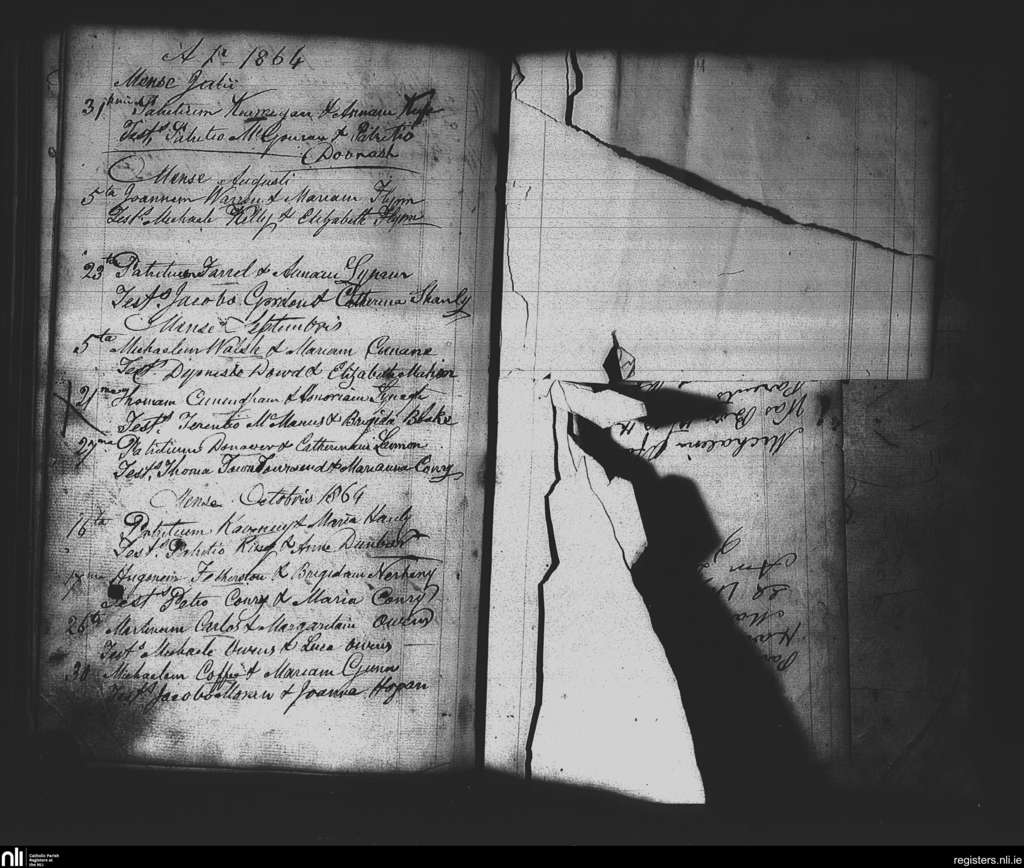 A D 1864
Mense Julii
31 Patritium & Annam
Test. Patritio McGouran & Patritio
Doorash
Mense Augusti
5ta Joannem Warren & Mariam Flynn
Tests Michaele Kelly & Elizabeth Flynn
23ta Patritium Farrel & Annam
Tests Jacobo Gordon & Catherina Shanly
Mense Septembris
5ta Michaelem Walsh & Mariam Cunane
Tests Dyonisio Dowd & Elizabeth
21 Thomam Cunengham & Honoriam
Tests Terentio McManus & Brigida Blake
27ma Patritium Donavan & Catherinam Lennon
Tests Thoma Townsend & Marianna Conry
Mense Octobris 1864
16ta Patritium & Maria Hanly
Tests Patritio King & Anne Dunbar
Eugenium Fetherston & Brigidam
Tests Patio Conry & Maria Conry
26ta Martinum Carlos & Margaritam Owens
Tests Michaele Owens & Luca Owens
30 Michaelem Coffey & Mariam Gunn
Tests Jacobo Moran & Joanna Hogan
Parents
Was Born
Michaelem
nli
Catholic Parish
Registers at
the NLI
registers.nli.ie